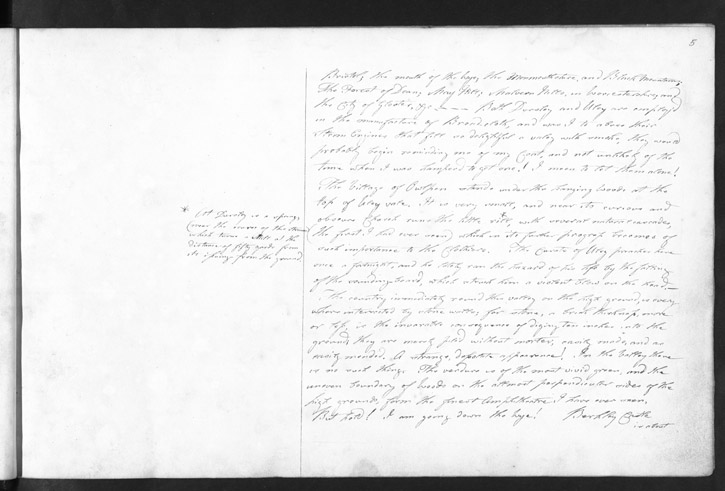 5
Bristol, the mouth of the Wye, the Monmouthshire, and Black Mountains,
The Forest of Dean, May Hill, Malvern Hills, in Worcestershire, and
the City of Gloster, &c — — — Both Dursley and Uley are employ'd
in the manufacture of Broadcloth, and was I to abuse their
Steam Engines that fill so delightful a valley with smoke, they would
probably begin reminding one of my Coat, and not unlikely of the
time when I was taught to get one! I mean to let them alone!
The Village of Owlpen stands under the hanging woods at the
top of Uley vale. It is very small, and near its curious and
obscure Church runs the little with several natural cascades,
(the first I had ever seen) which in its further progress becomes of
such importance to the Clothiers. The Curate of Uley preaches here
once a fortnight, and he truly ran the hazard of his life by the falling
of the sounding board, which struck him a violent blow on the head,—
The country immediately round the valley on the high ground, is every
where intersected by stone walls, for stone, a local
or top, is the invariable consequence of digging ten inches into the
ground; they are merely piled without mortar, easily made, and as
easily mended. A strange, desolate appearance! In the Valley there
is no such thing. The verdure is of the most vivid green, and the
uneven boundary of woods on the almost perpendicular sides of the
high grounds, form the finest amphitheatre I have ever seen.
But hold! I am going down the Wye! Berkley Castle
is about
* (At Dursley is a spring,
(near the source of the stream
which turns a Mill at the
distance of fifty yards from
its springing from the ground.